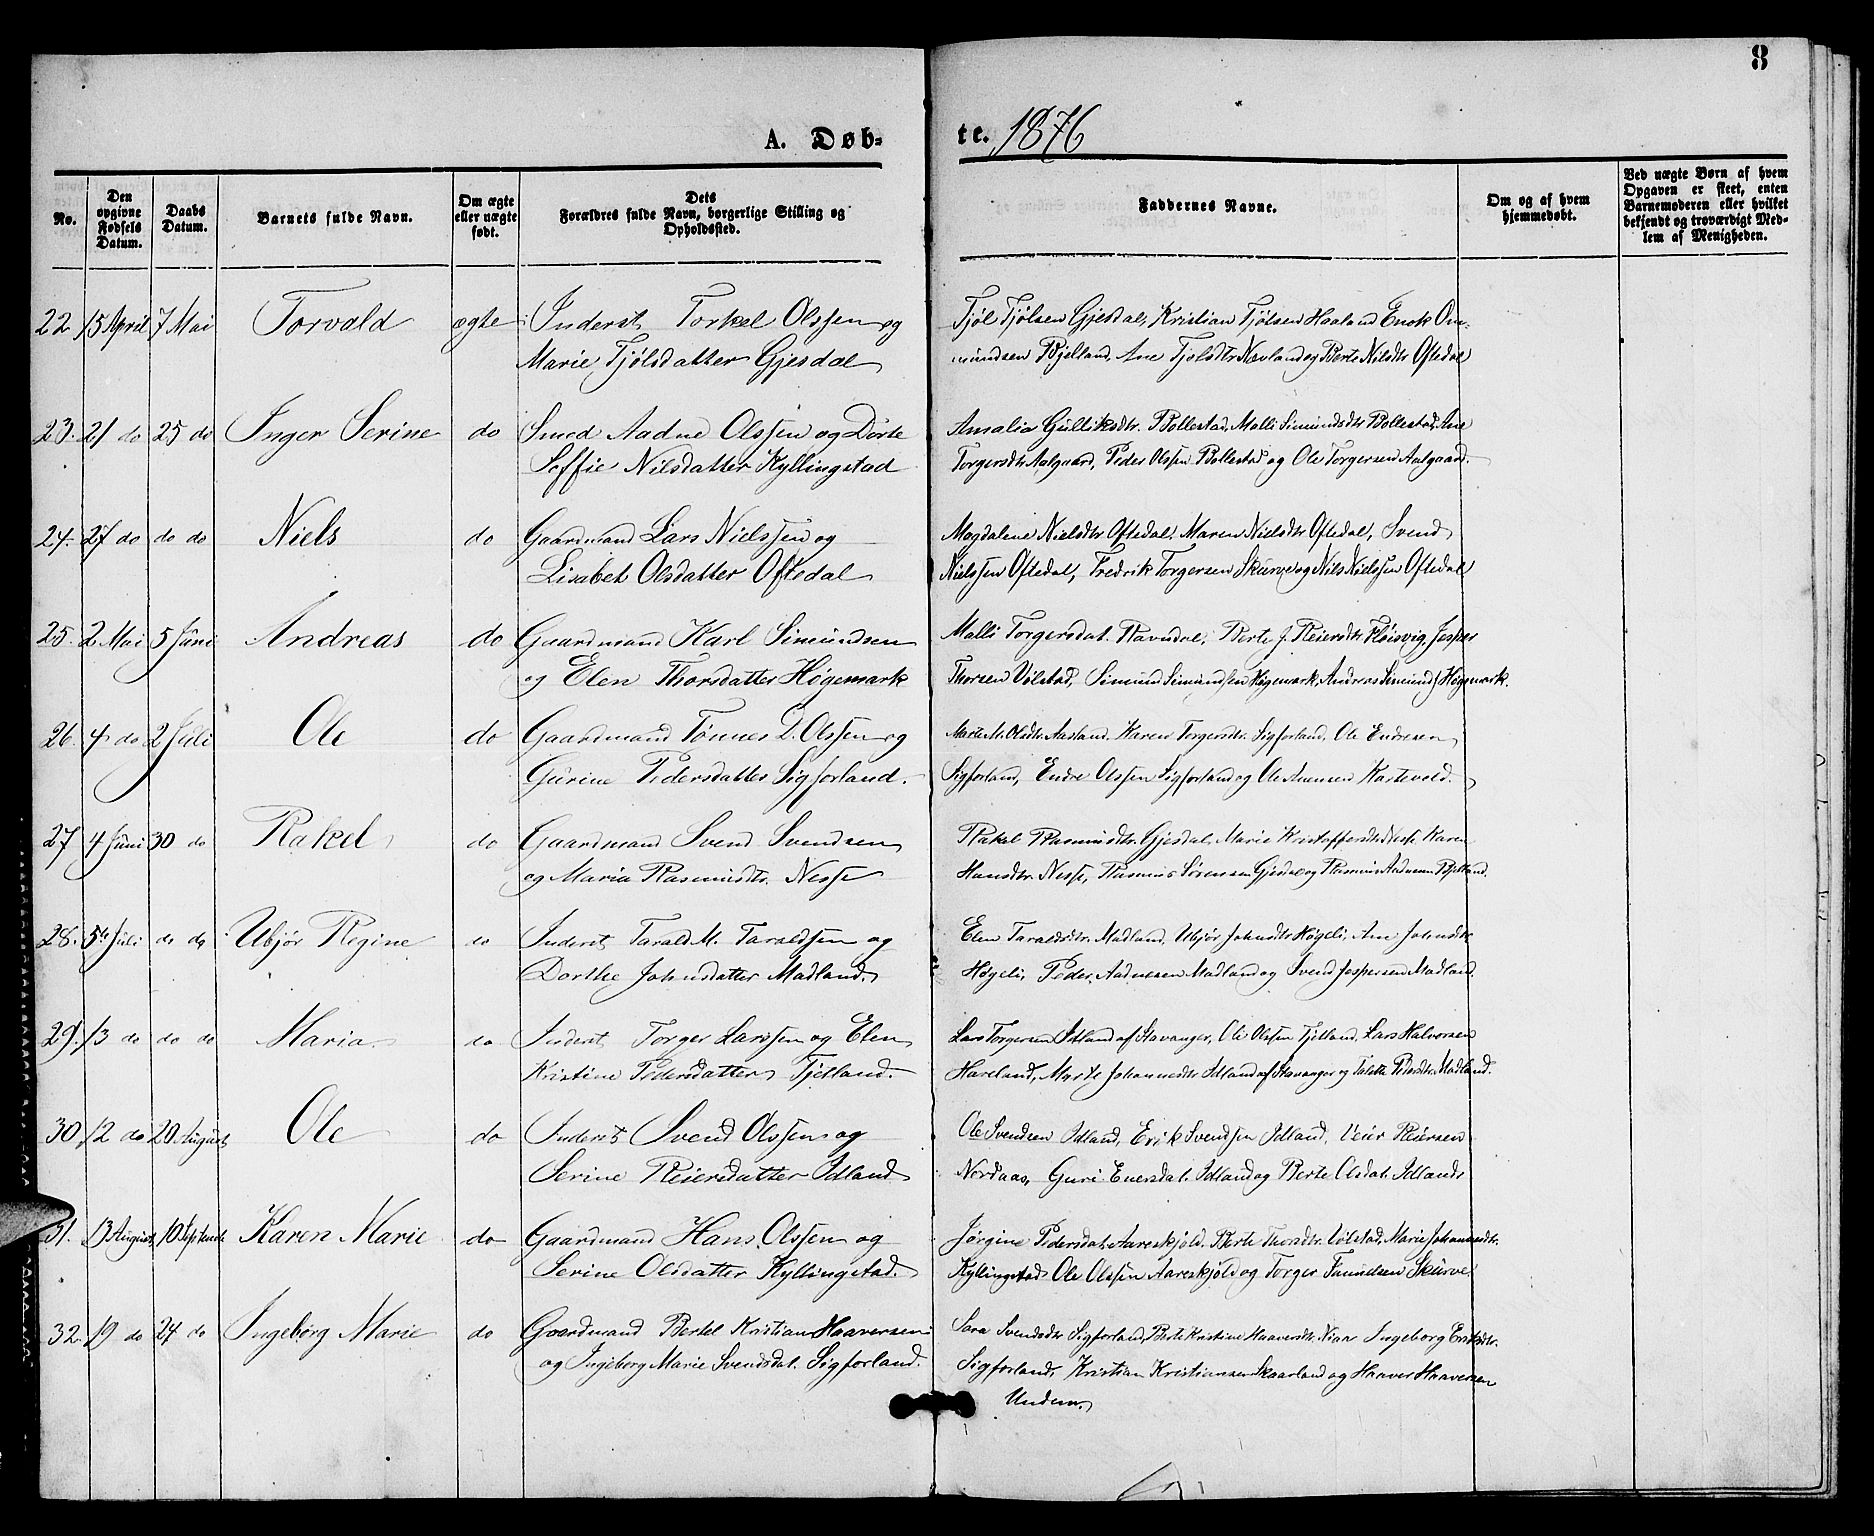 8
A. Døb-
te. 1876
No.
Den opgivne Fødsels Datum.
Daabs Datum.
Barnets fulde Navn.
Om ægte eller uægte født.
Dets Forældres fulde Navn, borgerlige Stilling og Opholdssted.
Faddernes Navne.
Om og af hvem hjemmedøbt.
Ved uægte Børn af hvem Opgaven er skeet, enten Barnemoderen eller hvilket bekjendt og troværdigt Medlem af Menigheden.
22 15 April 7 Mai Torvald ægte Inderst Torkel Olssen og
Marie Tjølsdatter Gjesdal
Tjøl Tjølsen Gjesdal, Kristian Tjølsen Haaland Enok Om-
mundsen Bjelland, Ane Tjolsdtr Navland og Berte Nilsdtr Oftedal
23. 21 do 25 do Inger Serine do Smed Aadne Olssen og Dorte
Soffie Nilsdatter Kyllingstad
Amalia Gulliksdtr. Bollestad, Malli Simundsdtr Bollestad, Ane
Torgersdtr Aalgaard, Peder Olssen Bollestad og Ole Torgersen Aalgaard.
24. 27 do do do Niels do Gaardmand Lars Nielssen og
Lisabet Olsdatter Oftedal
Magdalene Nielsdtr Oftedal, Maren Nielsdtr Oftedal, Svend
Nielssen Oftedal, Fredrik Torgersen Skurve og Nils Nielssen Oftedal
25. 2 Mai 5 Juni Andreas do Gaardmand Karl Simundsen
og Elen Thorsdatter Høgemark
Malli Torgersdat. Ravndal, Berte J. Reiersdtr Fløisvig, Jesper
Thorsen Vølstad, Simund Simundsen Høgemark, Andreas Simunds. Høgemark.
26. 4 do 2 Juli Ole do Gaardmand Tønnes D. Olssen og
Gurine Pedersdatter Sigforland.
Marte M. Olsdtr. Aasland. Karen Torgersdtr. Sigforland. Ole Endresen
Sigforland, Endre Olssen Sigforland og Ole Anensen Kartevold.
27 4 Juni 30 do Rakel do Gaardmand Svend Svendsen
og Maria Rasmusdtr. Nesse
Rakel Rasmusdtr. Gjesdal, Marie Kristoffersdtr Nesse Karen
Hansdtr. Nesse, Rasmus Sørensen Gjesdal og Rasmus Aadnesen Bjelland.
28. 5te Juli do do Ubjør Regine do Inderst Tarald M. Taraldsen og
Dorthe Johnsdatter Madland.
Elen Taraldsdtr. Madland, Ubjør Johnsdtr Høgeli, Ane Johnsdtr
Høgeli, Peder Aadnesen Madland og Svend Jespersen Madland.
29. 13 do do do Maria. do Inderst Torger Larssen og Elen
Kristine Pedersdatter Tjelland.
Lars Torgersen Idland af Stavanger, Ole Olssen Tjelland, Lars Halvorsen
Haveland, Marte Johannesdtr Idland af Stavanger og Talette Pedersdtr. Madland.
30 12 do 20 August Ole do Inderst Svend Olssen og
Serine Reiersdatter Idland
Ole Svendsen Idland, Erik Svendsen Idland, Veier Reiersen
Nordaas, Guri Enersdat. Idland og Berte Olsdat. Idland
31. 13 August 10 Septemb. Karen Marie do Gaardmand Hans Olssen og
Serine Olsdatter Kyllingstad.
Jørgine Pedersdat. Aareskjold, Berte Thorsdtr. Vølstad, Marie Johannesdtr.
Kyllingstad Ole Olssen Aareskjold og Torger Faundsen Skurve
32. 19 do 24 do Ingeborg Marie do Gaardmand Bertel Kristian Haaversen
og Ingeborg Marie Svendsdat. Sigforland.
Sara Svendsdtr Sigforland, Berte Kristine Haaversdtr. Niaa Ingeborg Eriksdtr.
Sigforland, Kristian Kristiansen Skaarland og Haaver Haaversen
Undem.